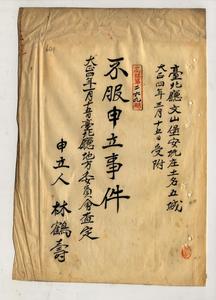 臺北廳文山堡安坑庄土名五城
大正四年三月十五日受附
不服申立事件
大正四年一月十五日臺北廳地方委員會査定
申立人 林鶴壽